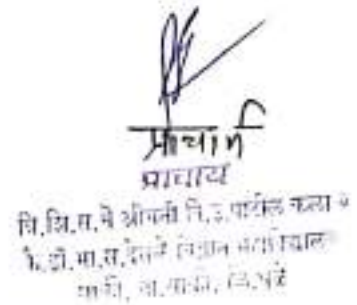 प्राचार्य
प्राचार्य
वि.शि.प्र.मं श्रीमती वि.उ.पाटील कला व
कै.डॉ.भा.स.देसले विज्ञान महाविद्यालय
साक्री, ता.साक्री, जि.धुळे